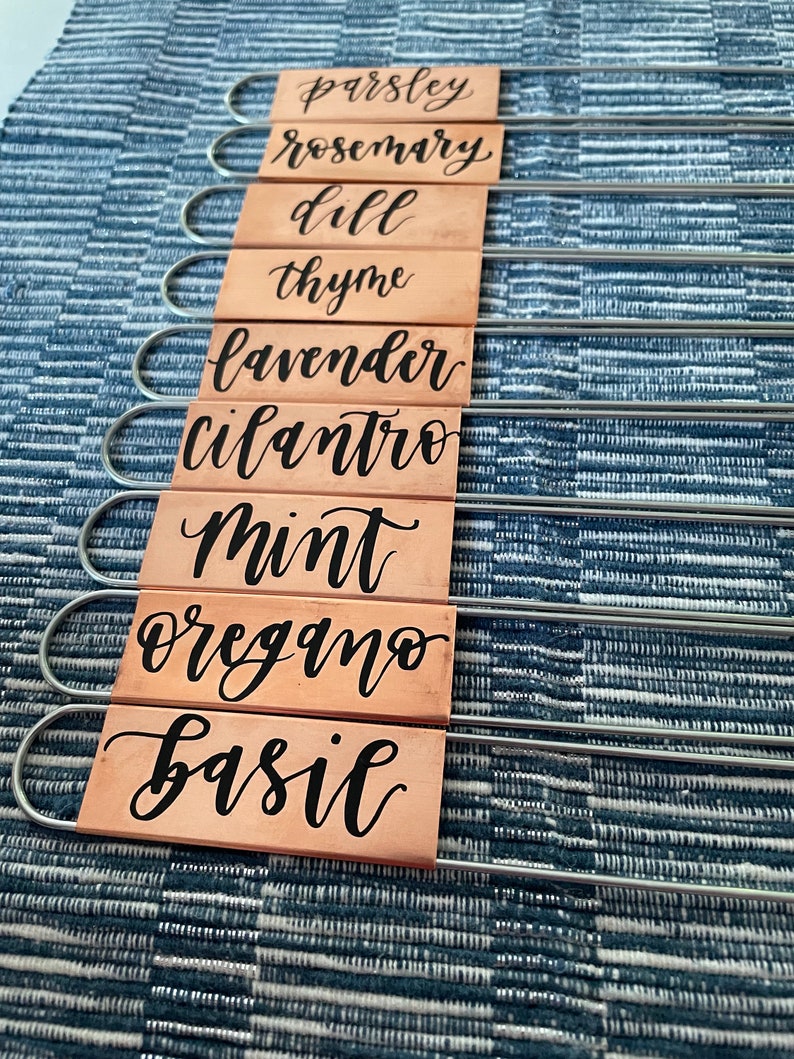 parsley
rosemary
dill
thyme
lavender
cilantro
mint
oregano
basil